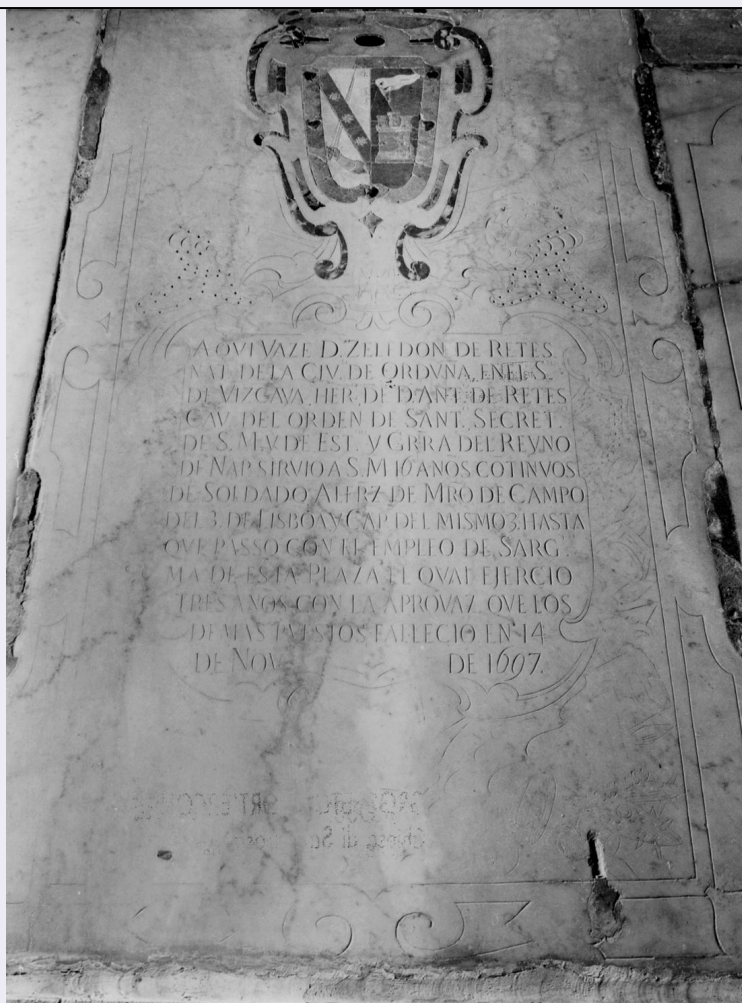 AQVI YAZE D. ZELEDON DE RETES
NAT. DE LA CIV. DE ORDVNA, EN EL S.
DE VIZCAYA, HER. DE D. ANT. DE RETES
CAV. DEL ORDEN DE SANT. SECRET.
DE S. M. Y DE EST. Y GRRA DEL REYNO
DE NAP. SIRVIO A S. M 16 ANOS COTINVOS
DE SOLDADO ALFRZ DE MRO DE CAMPO
DEL 3. DE LISBOA Y CAP. DEL MISMO 3. HASTA
QVE PASSO CON EL EMPLEO DE SARG.
MA DE ESTA PLAZA EL QVAL EJERCIO
TRES ANOS CON LA APROVAZ. QVE LOS
DEMAS PVESTOS FALLECIO EN 14
DE NOV. DE 1697.